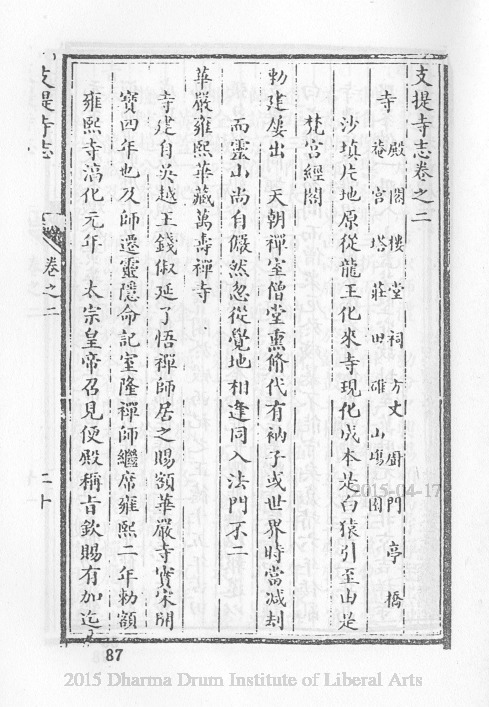 支提寺志卷之二
寺 殿 閣 樓 堂 祠 方丈 廚 門 亭 橋
菴 宮 塔 莊 田 碓 山場 園
沙填片地原從龍王化來寺現化成本是白猿引至由是
梵宮經閣
勅建屢出 天朝禪室僧堂熏脩代有衲子或世界時當减刦
而靈山尚自儼然忽從覺地相逢同入法門不二
華嚴雍熙華藏萬壽禪寺
寺建自吳越王錢俶延了悟禪師居之賜額華嚴寺實宋開
寳四年也及師遷靈隱命記室隆禪師繼席雍熙二年勅額
雍熙寺淳化元年 太宗皇帝召見便殿稱旨欽賜有加迄
支提寺志
卷之二
二十
87
2015-04-17
2015 Dharma Drum Institute of Liberal Arts